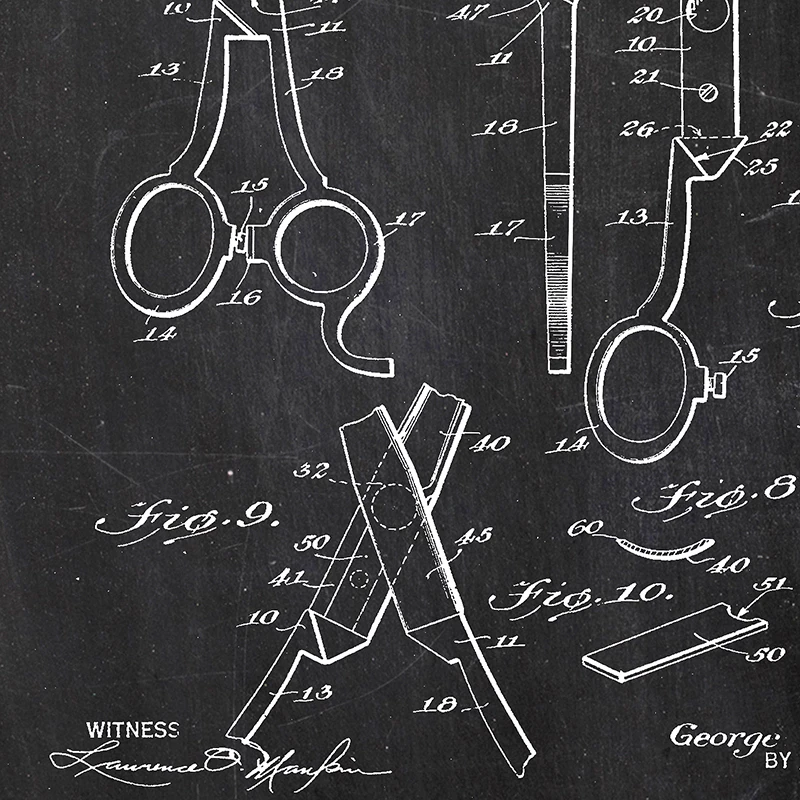 10
11
13
18
15
17
16
14
47
11
18
17
20
10
21
26
22
25
13
15
14
40
32
Fig. 9.
50
45
41
10
11
13
18
Fig. 8
60
40
Fig. 10.
51
50
WITNESS
Lawrence
George
BY